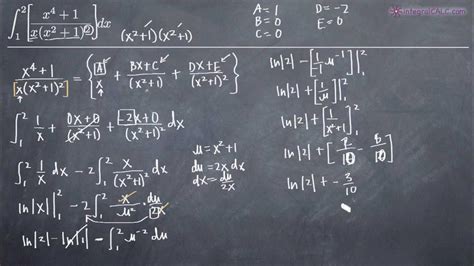 ∫₁² [ (x⁴+1) / (x(x²+1)²) ] dx
(x²+1)(x²+1)
A = 1 D = -2
B = 0 E = 0
C = 0
integralCALC.com
(x⁴+1) / (x(x²+1)²) = { A/x + (Bx+C)/(x²+1) + (Dx+E)/(x²+1)² }
∫₁² 1/x + (0x+0)/(x²+1) + (-2x+0)/(x²+1)² dx
∫₁² 1/x dx - 2∫₁² x/(x²+1)² dx
ln|x| |₁² - 2∫₁² x/u² · du/2x
ln|2| - ln|1| - ∫₁² u⁻² du
u = x²+1
du = 2x dx
dx = du/2x
ln|2| - [ -1/1 u⁻¹ ] |₁²
ln|2| + [ 1/u ] |₁²
ln|2| + [ 1/(x²+1) ] |₁²
ln|2| + [ 2/10 - 5/10 ]
ln|2| + - 3/10